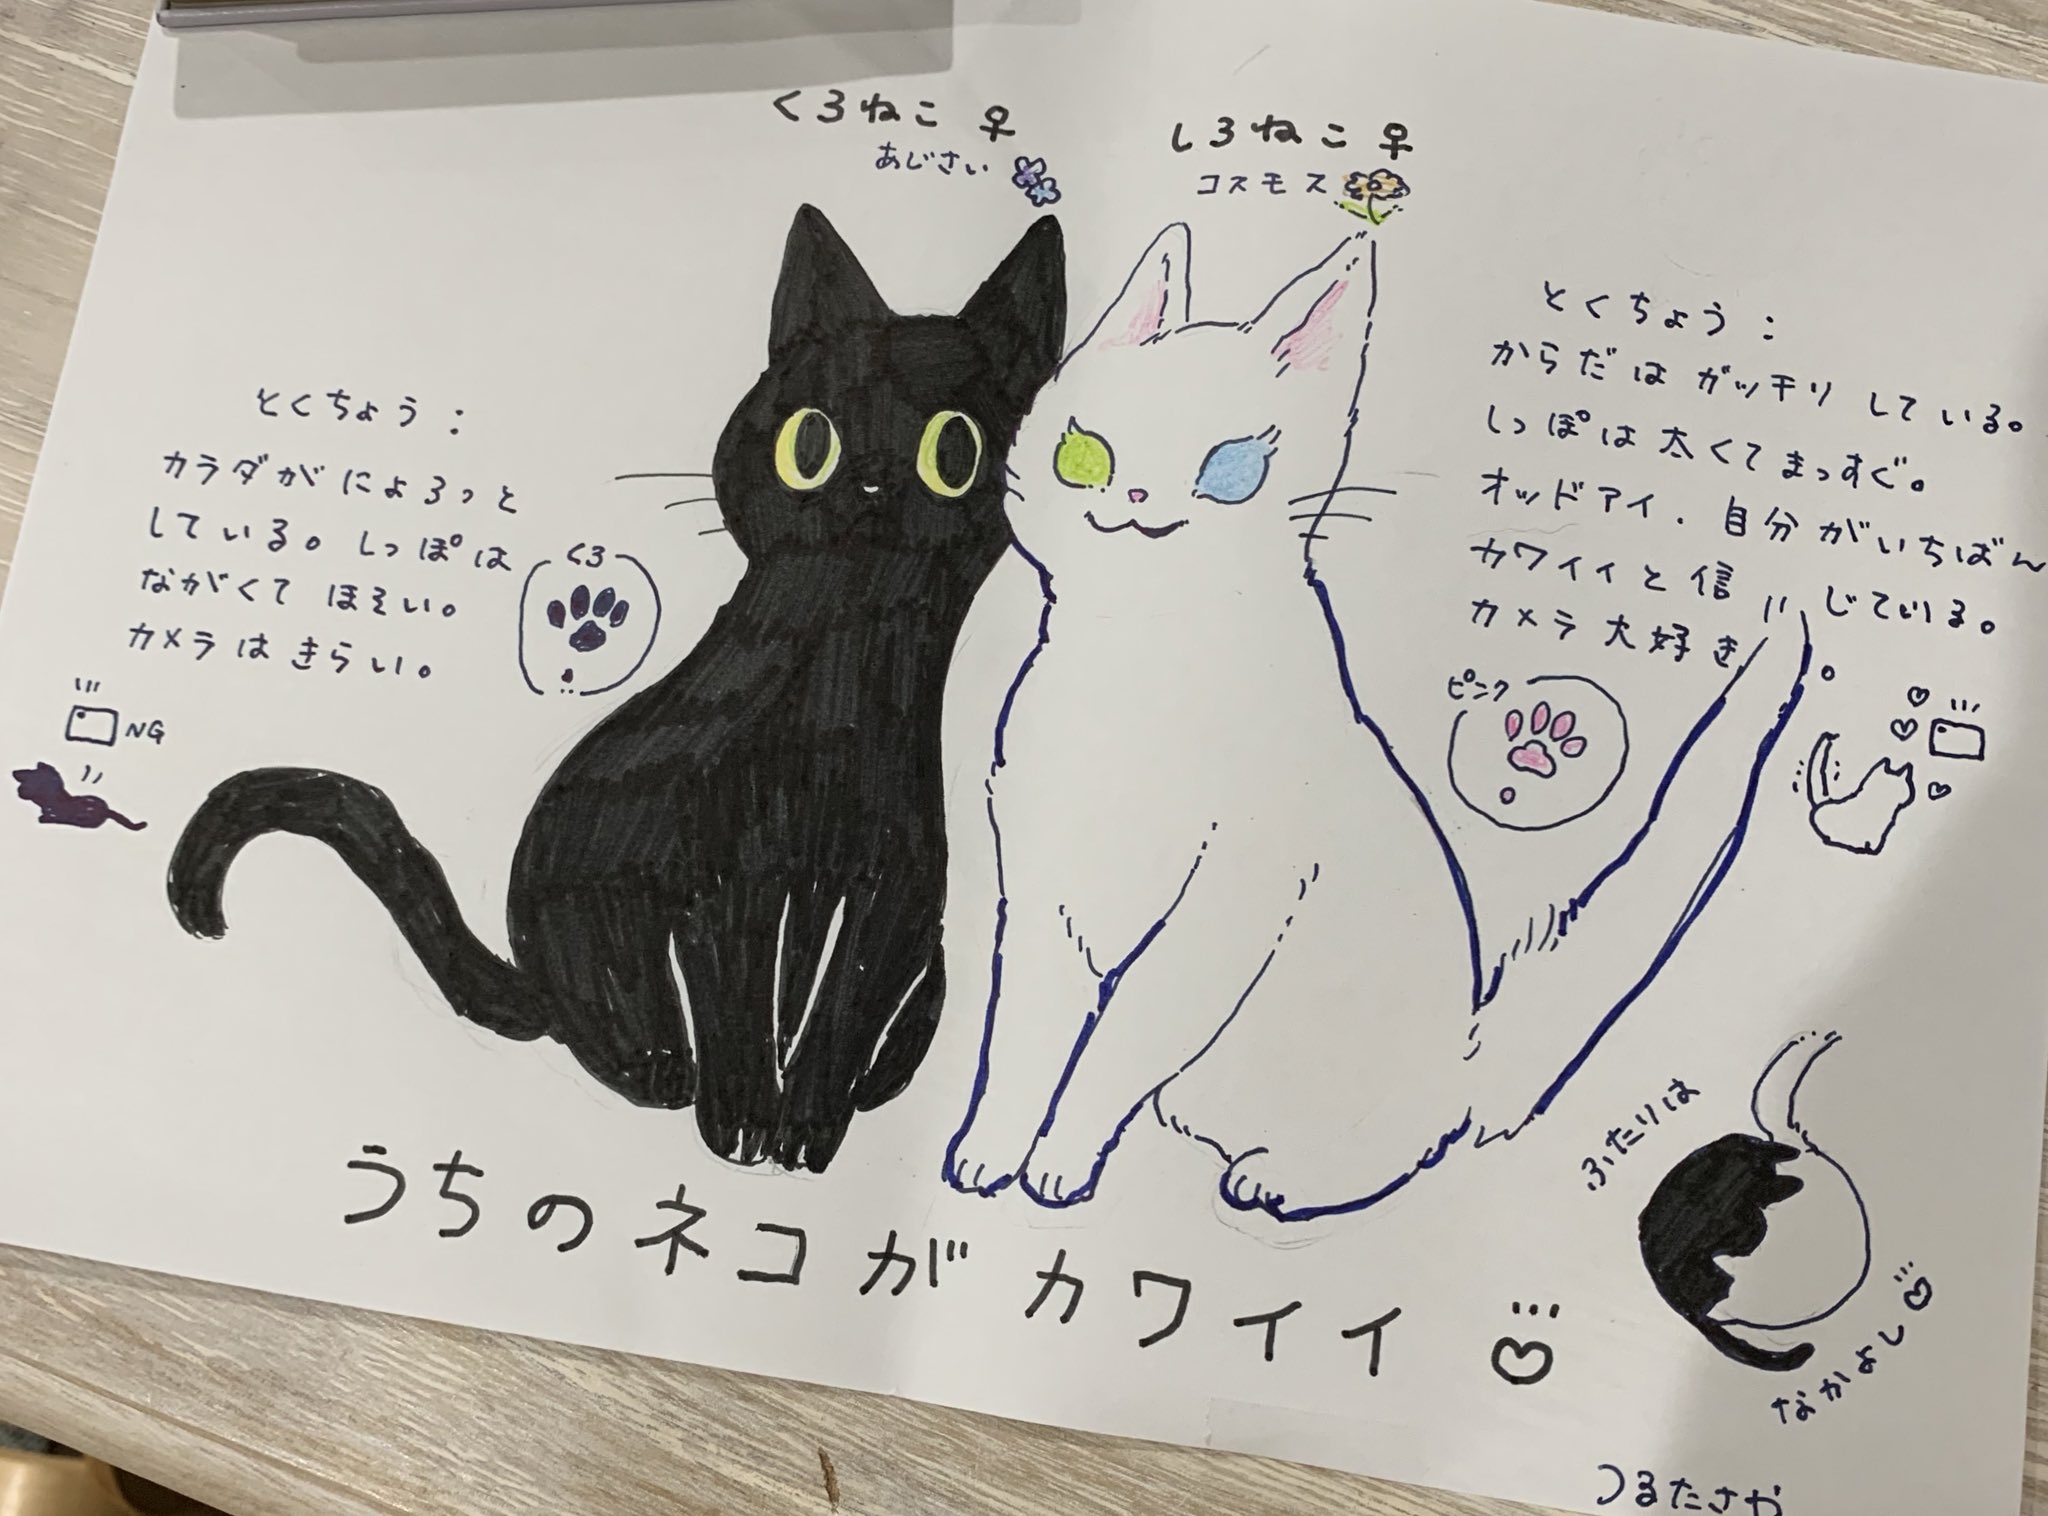 くろねこ ♀
あじさい
しろねこ ♀
コスモス
とくちょう：
カラダがにょろっと
している。しっぽは
ながくて ほそい。
カメラは きらい。
くろ
NG
とくちょう：
からだは ガッチリ している。
しっぽは太くてまっすぐ。
オッドアイ. 自分がいちばん
カワイイと信じている。
カメラ大好き。
ピンク
ふたりは
なかよし♡
うちのネコがカワイイ♡
つるたさや